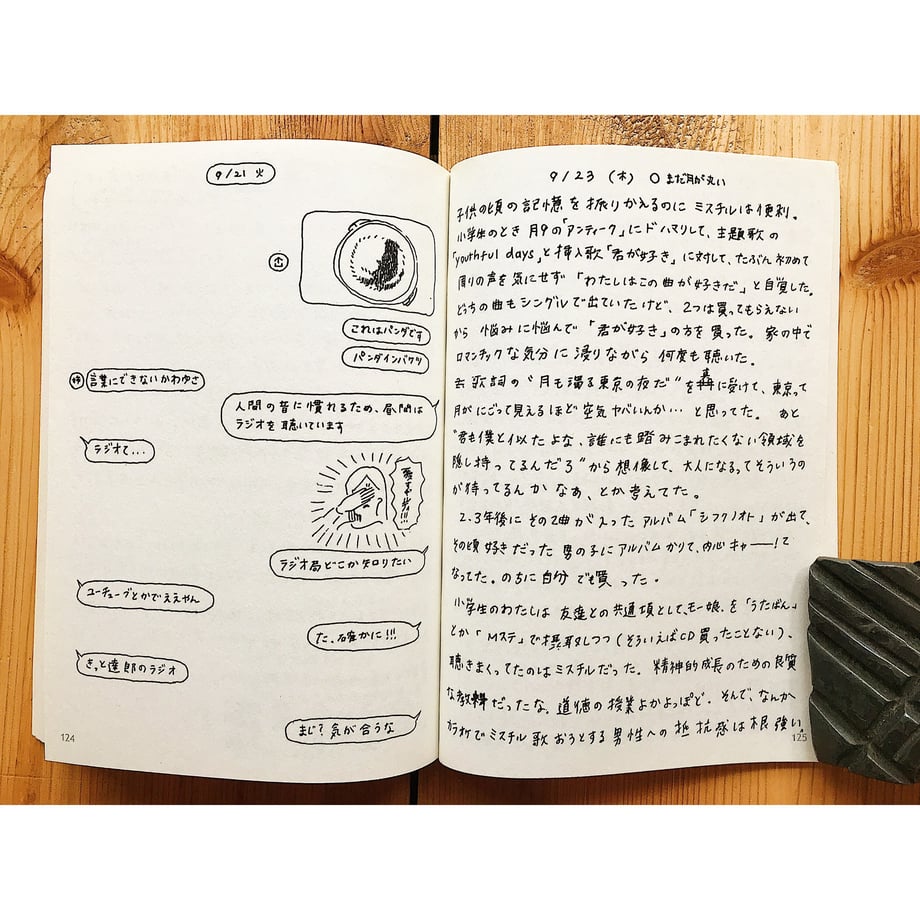 9/21 火
これはパンダです
パンダインバケツ
言葉にできないかわゆさ
人間の音に慣れるため、昼間は
ラジオを聴いています
ラジオて...
ラジオ局どこか知りたい
ユーチューブとかでええやん
た、確かに!!!
きっと達郎のラジオ
まじ?気が合うな
124
9/23 (木) ○ まだ月が丸い
子供の頃の記憶を振りかえるのにミスチルは便利。
小学生のとき月9の「アンティーク」にドハマりして、主題歌の
「youthful days」と挿入歌「君が好き」に対して、たぶん初めて
周りの声を気にせず「わたしはこの曲が好きだ」と自覚した。
どっちの曲もシングルで出ていたけど、2つは買ってもらえない
から悩みに悩んで「君が好き」の方を買った。家の中で
ロマンチックな気分に浸りながら何度も聴いた。
歌詞の“月も濁る東京の夜だ”を真に受けて、東京って
月がにごって見えるほど空気ヤバいんか…と思ってた。あと
“君も僕と似たよな、誰にも踏みこまれたくない領域を
隠し持ってるんだろ”から想像して、大人になるってそういうの
が待ってるんかなあ、とか考えてた。
2、3年後にその2曲が入ったアルバム「シフクノオト」が出て、
その頃好きだった男の子にアルバムかりて、内心キャー!て
なってた。のちに自分でも買った。
小学生のわたしは友達との共通項としてモー娘。を「うたばん」
とか「Mステ」で摂取しつつ(そういえばCD買ったことない)、
聴きまくってたのはミスチルだった。精神的成長のための良質
な教材だったな。道徳の授業よかよっぽど。そんで、なんか
カラオケでミスチル歌おうとする男性への抵抗感は根強い。
125